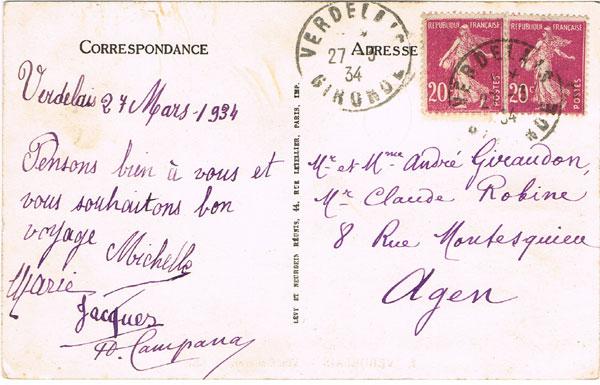 CORRESPONDANCE
ADRESSE
VERDELAIS
27-3
34
GIRONDE
REPUBLIQUE FRANÇAISE
20c
POSTES
REPUBLIQUE FRANÇAISE
20c
POSTES
VERDELAIS
34
Verdelais 27 Mars 1934
Pensons bien à vous et
vous souhaitons bon
voyage Michelle
Marie
Jacques
Campana
LÉVY ET NEURDEIN RÉUNIS, 44, RUE LETELLIER, PARIS, IMP.
Mr et Mme André Giraudon,
Mr Claude Robine
8 Rue Montesquieu
Agen